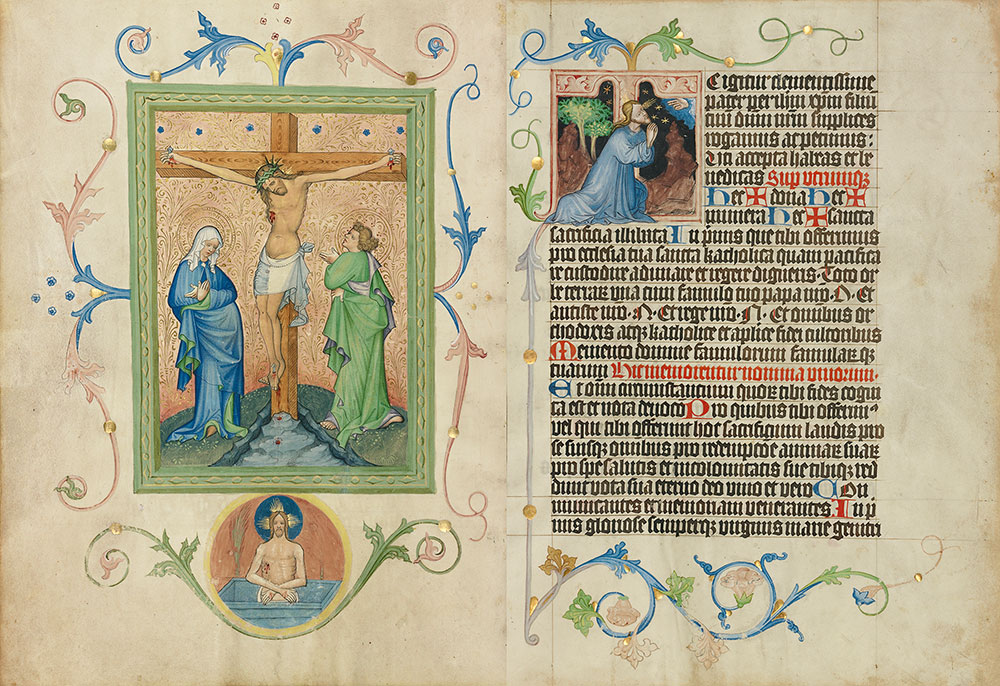 TE igitur clementissime
pater per ihm xpm filiū
tuū dnm nrm supplices
rogamus ac petimus:
Uti accepta habeas et be
nedicas Sup utrumqꝫ
Hec ✠ dona Hec ✠
munera Hec ✠ sancta
sacrificia illibata In pmis que tibi offerimus
pro ecclesia tua sancta katholica quam pacifica
re custodire adunare et regere digneris Toto or
be terraꝝ una cum famulo tuo papa nro .N. Et
antiste nro .N. Et rege nro .N. Et omibus or
thodoxis atqꝫ katholice et aplice fidei cultoribus
Memento domine famulorum famulaꝝ qꝫ
tuarum Hic memorentur nomina vivorum.
Et omi circumstantium quoꝝ tibi fides cogni
ta est et nota devoco Pro quibus tibi offerimꝰ
vel qui tibi offerunt hoc sacrificium laudis pro
se suisqꝫ omnibus pro redempcoe animaꝝ suaꝝ
pro spe salutis et incolumitatis sue tibiqꝫ red
dunt vota sua eterno deo vivo et vero Com
municantes et memoriam venerantes In p
mis gloriose semperqꝫ virginis marie genitri